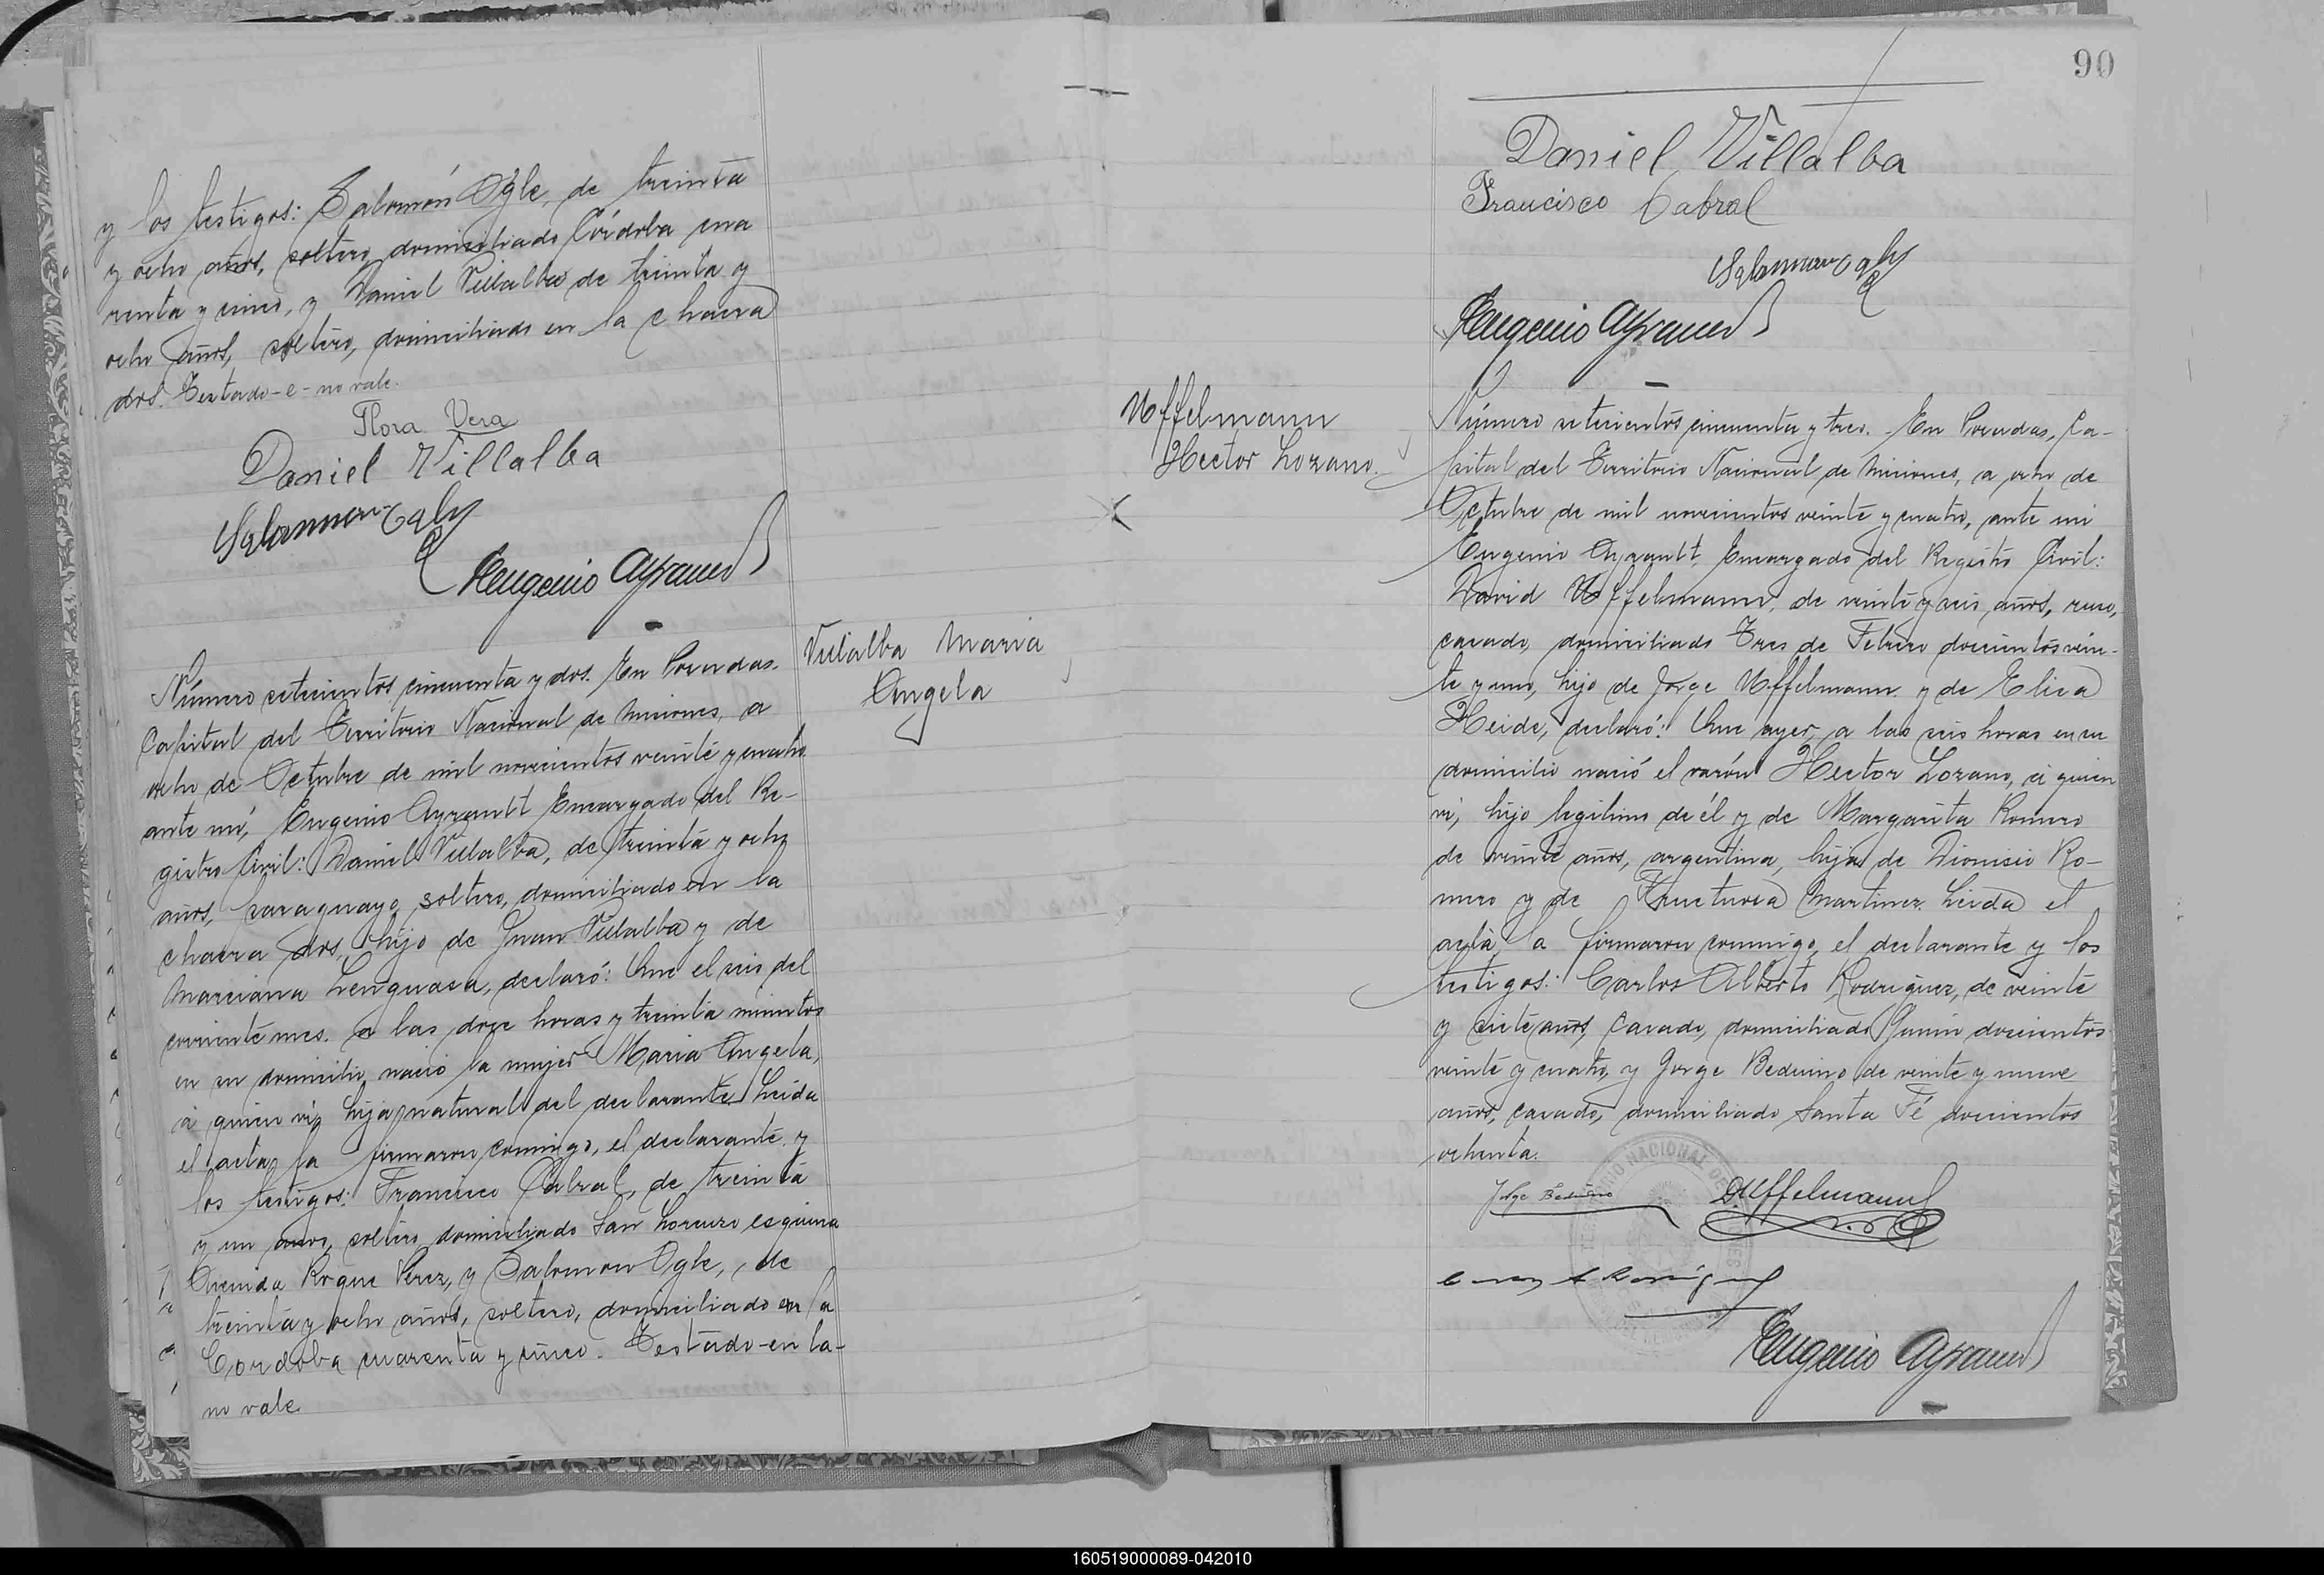 y los testigos: Salomón Ogle, de treinta
y ocho años, soltero, domiciliado Córdoba cua
renta y cinco, y Daniel Villalba de treinta y
ocho años, soltero, domiciliado en la chacra
dos. Testado-e-no vale.
Flora Vera
Daniel Villalba
Eugenio Ayrault
Número setecientos cincuenta y dos. En Posadas.
Capital del Territorio Nacional de Misiones, a
ocho de Octubre de mil novecientos veinte y cuatro
ante mí, Eugenio Ayrault Encargado del Re-
gistro Civil: Daniel Villalba, de treinta y ocho
años, paraguayo, soltero, domiciliado en la
chacra dos, hijo de Juan Villalba y de
Marciana Lenguasa, declaró: Que el seis del
corriente mes. a las doce horas y treinta minutos
en su domicilio nació la mujer María Angela,
á quien ví, hija natural del declarante. Leida
el acta, la firmaron conmigo, el declarante y
los testigos: Francisco Cabral, de treinta
y un años, soltero, domiciliado San Lorenzo esquina
Avenida Roque Perez, y Salomon Ogle, de
treinta y ocho años, soltero, domiciliado en la
Cordoba cuarenta y cinco. Testado-en la-
no vale.
Villalba Maria
Angela
90
Daniel Villalba
Francisco Cabral
Eugenio Ayrault
Uffelmann
Hector Lozano.
Número setecientos cincuenta y tres. En Posadas, Ca-
pital del Territorio Nacional de Misiones, a ocho de
Octubre de mil novecientos veinte y cuatro, ante mi
Eugenio Ayrault, Encargado del Registro Civil:
David Uffelmann, de veinte y seis años, ruso,
casado, domiciliado Tres de Febrero doscientos vein-
te y uno, hijo de Jorge Uffelmann y de Elisa
Heide, declaró: Que ayer, a las seis horas en su
domicilio nació el varón Hector Lozano, á quien
ví, hijo legitimo de él y de Margarita Romero
de veinte años, argentina, hija de Dionisio Ro-
mero y de Fructuosa Martinez. Leida el
acta, la firmaron conmigo, el declarante y los
testigos: Carlos Alberto Rodriguez, de veinte
y siete años, casado, domiciliado Junin doscientos
veinte y cuatro, y Jorge Beduino de veinte y nueve
años, casado, domiciliado Santa Fé doscientos
ochenta.
Jorge Beduino D. Uffelmann
Eugenio Ayrault
160519000089-042010